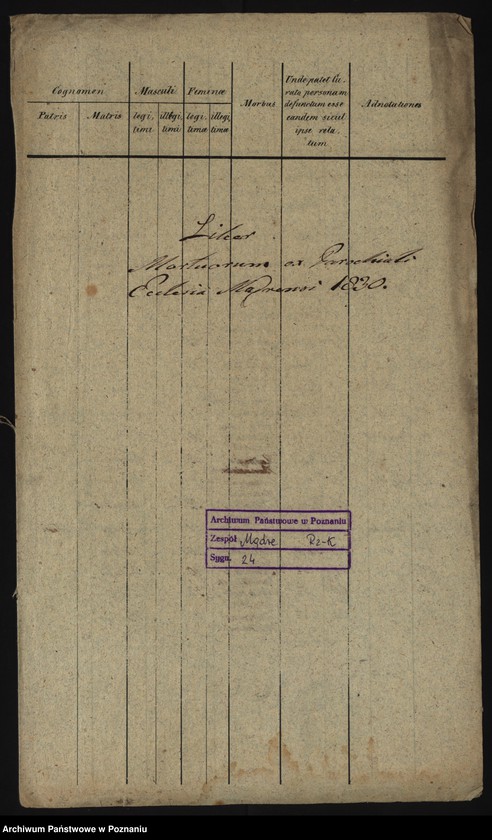 Cognomen
Masculi
Feminæ
Morbus
Unde patet Cu-
rata personam
defunctum esse
eandem sicut
ipse rela-
tum
Adnotationes
Patris
Matris
legi-
timi
illegi
timi
legi-
timæ
illegi
timæ
Liber
Mortuorum ex Parochiali
Ecclesia Mądrensi 1830.
Archiwum Państwowe w Poznaniu
Zespół Mądre Rz-K
Sygn. 24
Archiwum Państwowe w Poznaniu